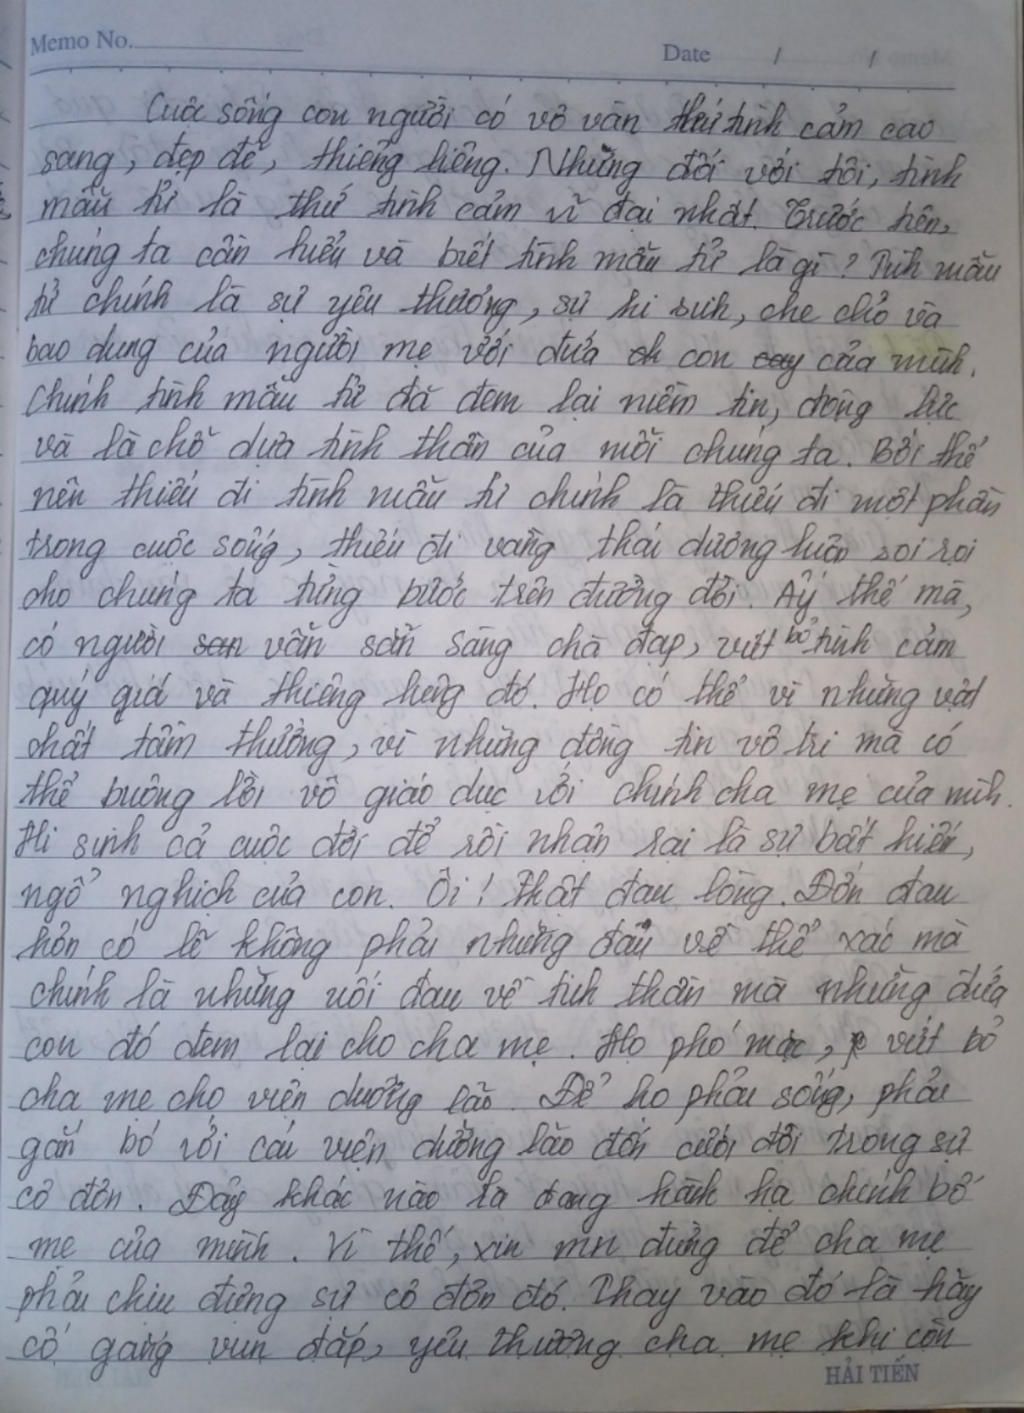 Memo No. Date / /
Cuộc sống con người có vô vàn thứ tình cảm cao
sang, đẹp đẽ, thiêng liêng. Nhưng đối với tôi, tình
mẫu tử là thứ tình cảm vĩ đại nhất. Trước tiên,
chúng ta cần hiểu và biết tình mẫu tử là gì? Tình mẫu
tử chính là sự yêu thương, sự hi sinh, che chở và
bao dung của người mẹ với đứa con của mình.
Chính tình mẫu tử đã đem lại niềm tin, động lực
và là chỗ dựa tinh thần của mỗi chúng ta. Bởi thế
nên thiếu đi tình mẫu tử chính là thiếu đi một phần
trong cuộc sống, thiếu đi vầng thái dương luôn soi rọi
cho chúng ta từng bước trên đường đời. Ấy thế mà,
có người vẫn sẵn sàng chà đạp, vứt bỏ tình cảm
quý giá và thiêng liêng đó. Họ có thể vì những vật
chất tầm thường, vì những đồng tin vô tri mà có
thể buông lời vô giáo dục với chính cha mẹ của mình.
Hi sinh cả cuộc đời để rồi nhận lại là sự bất hiếu,
ngỗ nghịch của con. Ôi! Thật đau lòng. Đớn đau
hơn có lẽ không phải những đau về thể xác mà
chính là những nỗi đau về tinh thần mà những đứa
con đó đem lại cho cha mẹ. Họ phó mặc, vứt bỏ
cha mẹ cho viện dưỡng lão. Để họ phải sống, phải
gắn bó với cái viện dưỡng lão đến cuối đời trong sự
cô đơn. Đây khác nào ta đang hành hạ chính bố
mẹ của mình. Vì thế, xin mn đừng để cha mẹ
phải chịu đựng sự cô đơn đó. Thay vào đó là hãy
cố gắng vun đắp, yêu thương cha mẹ khi còn
HẢI TIẾN